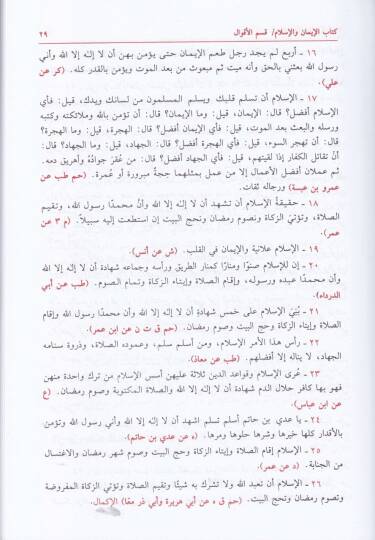 كتاب الإيمان والإسلام/ قسم الأقوال ٢٩
١٦ - أربع لم يجد رجل طعم الإيمان حتى يؤمن بهن أن لا إله إلا الله وأني
رسول الله بعثني بالحق وأنه ميت ثم مبعوث من بعد الموت ويؤمن بالقدر كله. (كر عن
علي).
١٧ - الإسلام أن تسلم قلبك ويسلم المسلمون من لسانك ويدك، قيل: فأي
الإسلام أفضل؟ قال: الإيمان، قيل: وما الإيمان؟ قال: أن تؤمن بالله وملائكته وكتبه
ورسله والبعث بعد الموت، قيل: فأي الإيمان أفضل؟ قال: الهجرة، قيل: وما الهجرة؟
قال: أن تهجر السوء، قيل: فأي الهجرة أفضل؟ قال: الجهاد، قيل: وما الجهاد؟ قال:
أن تقاتل الكفار إذا لقيتهم، قيل: فأي الجهاد أفضل؟ قال: من عُقرَ جوادُهُ وأهريق دمه.
ثم عملان أفضل الأعمال إلا من عمل بمثلهما حجةٌ مبرورة أو عُمرة. (حم طب عن
عمرو بن عبسة) ورجاله ثقات.
١٨ - حقيقةُ الإسلام أن تشهد أن لا إله إلا الله وأنَّ محمدًا رسول الله، وتقيم
الصلاة، وتؤتيَ الزكاة وتصوم رمضان وتحج البيت إن استطعت إليه سبيلاً. (م ٣ عن
عمر).
١٩ - الإسلام علانية والإيمان في القلب. (ش عن أنس).
٢٠ - إن للإسلام صوًا ومنارًا كمنار الطريق ورأسه وجماعه شهادة أن لا إله إلا الله
وأن محمدًا عبده ورسوله، وإقام الصلاة وإيتاء الزكاة وتمام الصوم. (طب عن أبي
الدرداء).
٢١ - بُنِيَ الإسلام على خمس شهادةِ أن لا إله إلا الله وأن محمدًا رسول الله وإقام
الصلاة وإيتاء الزكاة وحج البيت وصوم رمضان. (حم ق ت ن عن ابن عمر).
٢٢ - رأس هذا الأمر الإسلام، ومن أسلم سلم، وعموده الصلاة، وذروة سنامه
الجهاد، لا يناله إلا أفضلهم. (طب عن معاذ).
٢٣ - عُرى الإسلام وقواعد الدين ثلاثة عليهن أسس الإسلام من ترك واحدة منهن
فهو بها كافر حلال الدم شهادة أن لا إله إلا الله والصلاة المكتوبة وصوم رمضان. (ع
عن ابن عباس).
٢٤ - يا عدي بن حاتم أسلم تسلم اشهد أن لا إله إلا الله وأني رسول الله وتؤمن
بالأقدار كلها خيرها وشرها حلوها ومرها. (ه عن عدي بن حاتم).
٢٥ - الإسلام إقام الصلاة وإيتاء الزكاة وحج البيت وصوم شهر رمضان والاغتسال
من الجنابة. (د عن عمر).
٢٦ - الإسلام أن تعبد الله ولا تشرك به شيئًا وتقيم الصلاة وتؤتي الزكاة المفروضة
وتصوم رمضان وتحج البيت. (حم ق ه عن أبي هريرة وأبي ذر معًا) الإكمال.